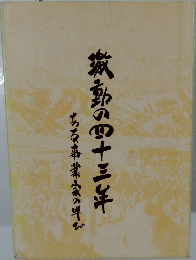 激動の四十三年
ある事業家の歩み